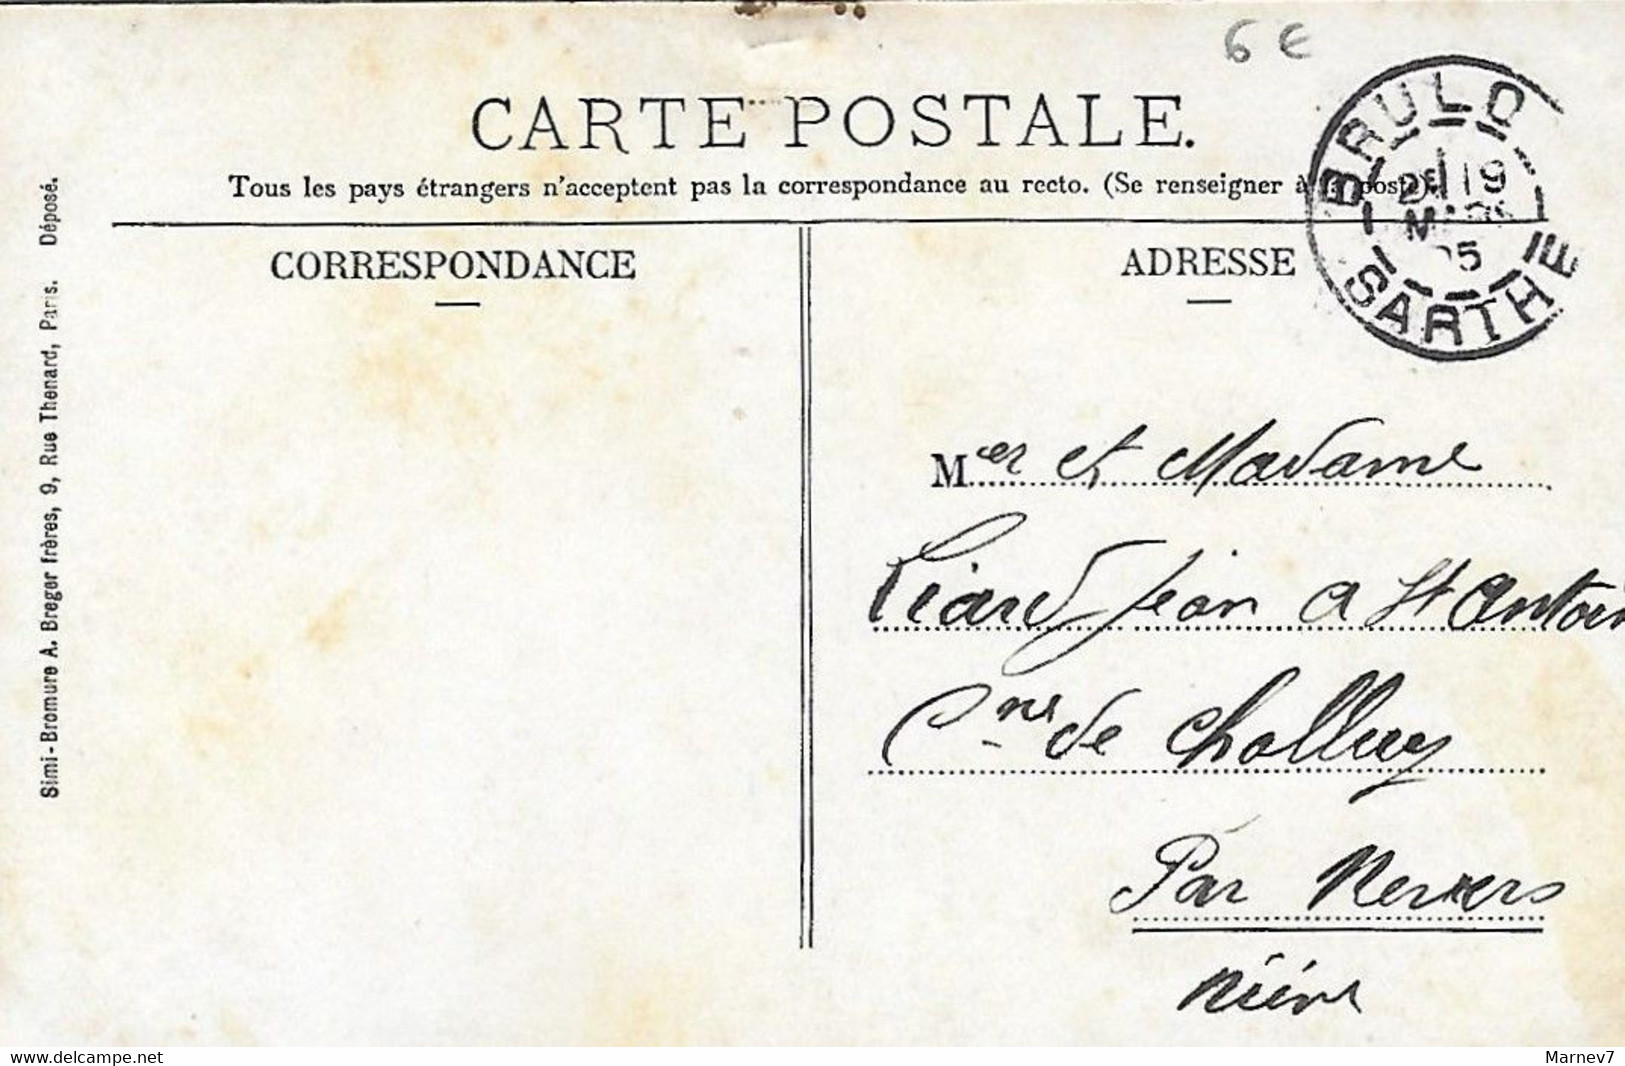 6 €
CARTE POSTALE.
Tous les pays étrangers n'acceptent pas la correspondance au recto. (Se renseigner à la poste).
BRULO
19
05
SARTHE
CORRESPONDANCE
ADRESSE
Simi-Bromure A. Breger frères, 9, Rue Thenard, Paris. Déposé.
Mer et Madame
Liard Jean a St Antoin
Cne de Challuy
Par Nevers
Nièvre
delcampe.net
Marnev7